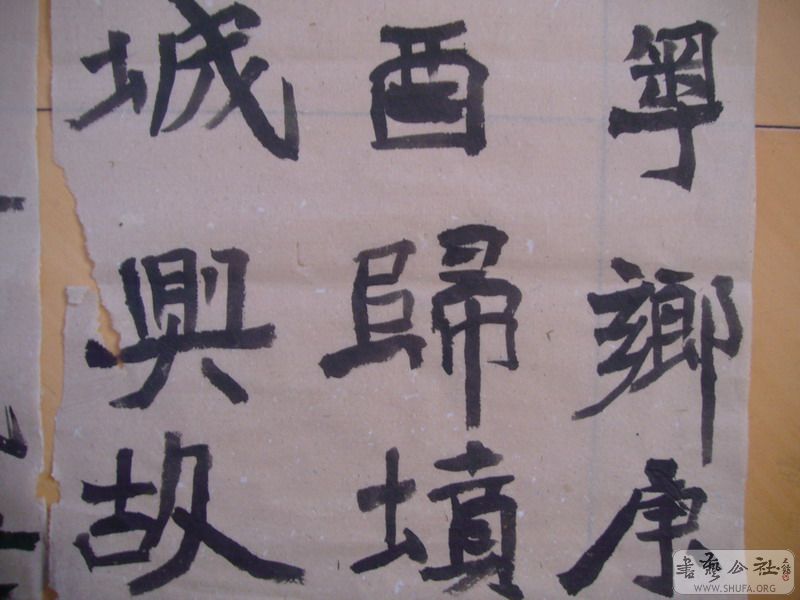 鄉庚
酉歸墳
城興故
書藝公社
WWW.SHUFA.ORG